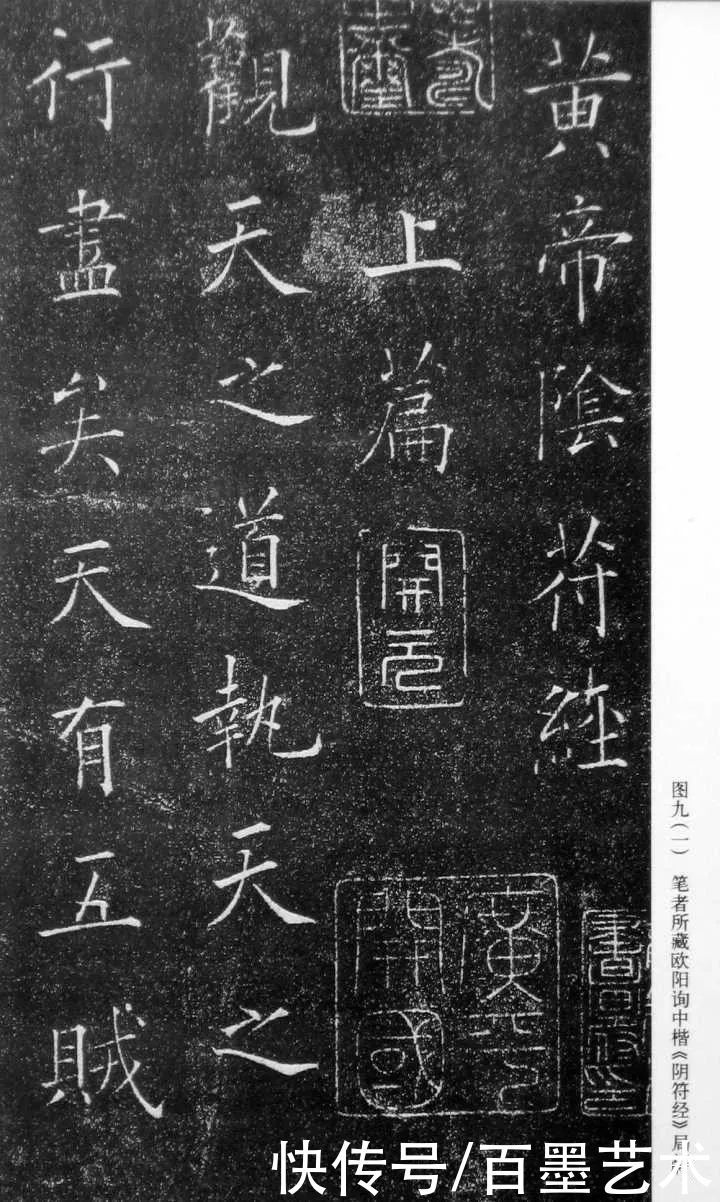 黄帝陰符經
上篇
開元
觀天之道執天之
行盡矣天有五賊
廣平開國
图九（一） 笔者所藏欧阳询中楷《阴符经》局部
快传号/百墨艺术